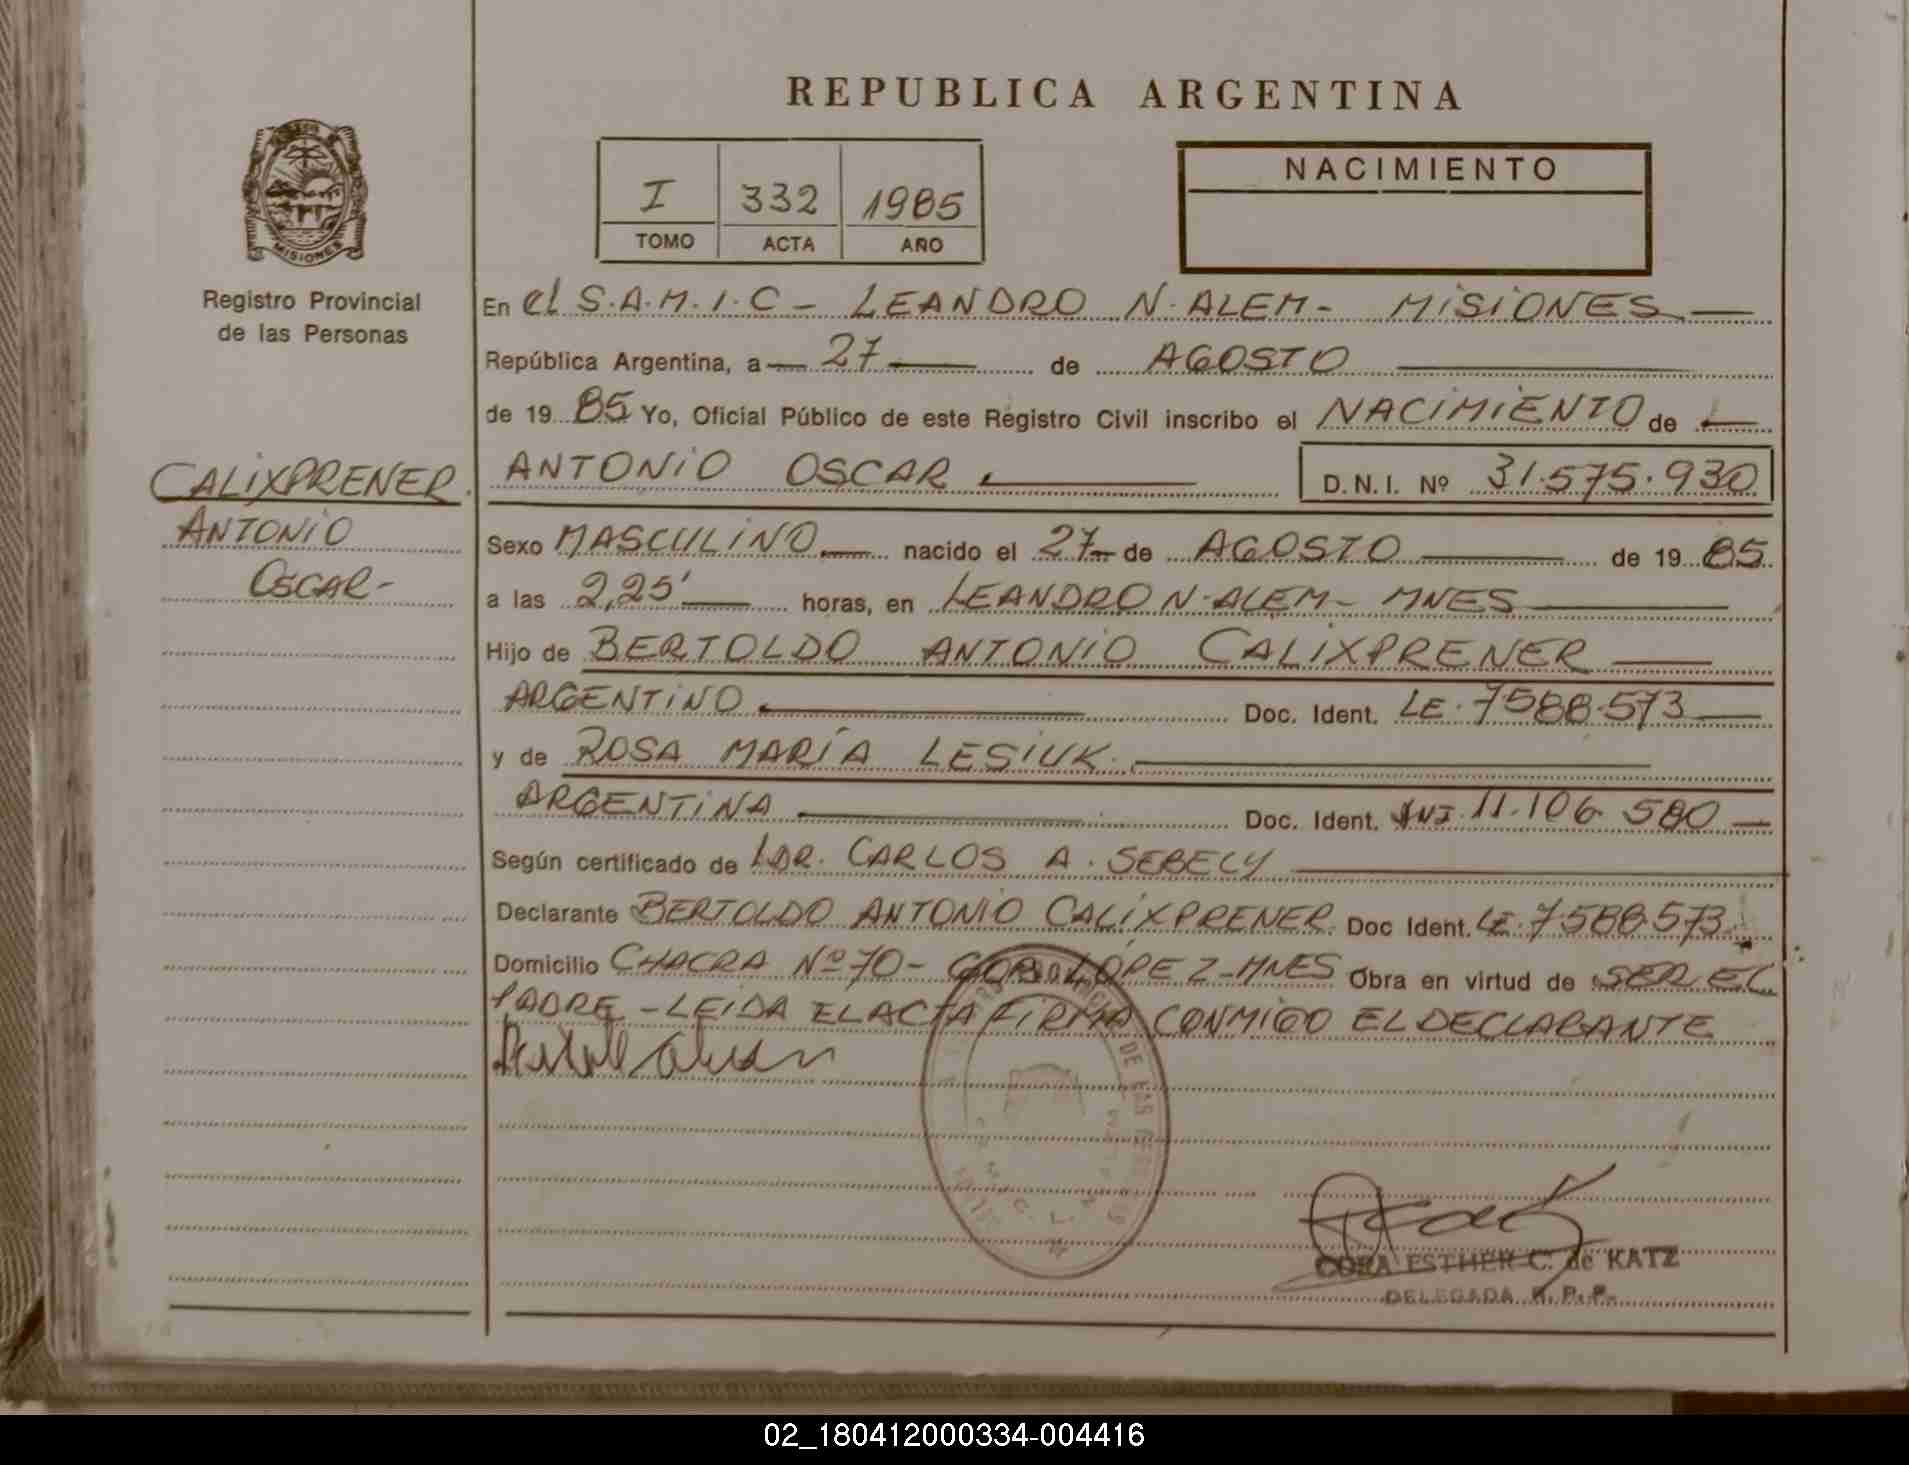 REPUBLICA ARGENTINA
MISIONES
Registro Provincial
de las Personas
I 332 1985
TOMO ACTA AÑO
NACIMIENTO
En el S.A.M.I.C - LEANDRO N. ALEM - MISIONES
República Argentina, a 27 de AGOSTO
de 19 85 Yo, Oficial Público de este Registro Civil inscribo el NACIMIENTO de
ANTONIO OSCAR D.N.I. Nº 31.575.930
CALIXPRENER
ANTONIO
OSCAR-
Sexo MASCULINO nacido el 27 de AGOSTO de 19 85
a las 2,25' horas, en LEANDRO N. ALEM - MNES
Hijo de BERTOLDO ANTONIO CALIXPRENER
ARGENTINO Doc. Ident. LE. 7588.573
y de ROSA MARÍA LESIUK.
ARGENTINA Doc. Ident. 11.106 580
Según certificado de DR. CARLOS A. SEBELY
Declarante BERTOLDO ANTONIO CALIXPRENER. Doc Ident. LE. 7.588.573
Domicilio CHACRA Nº 70 - GOB. LÓPEZ - MNES Obra en virtud de SER EL
PADRE - LEIDA EL ACTA FIRMA CONMIGO EL DECLARANTE
CORA ESTHER C. de KATZ
DELEGADA R. P. P.
02_180412000334-004416